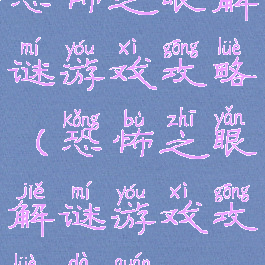 恐怖之眼解
mí yóu xì gōng lüè
谜游戏攻略
kǒng bù zhī yǎn
(恐怖之眼
jiě mí yóu xì gōng
解谜游戏攻